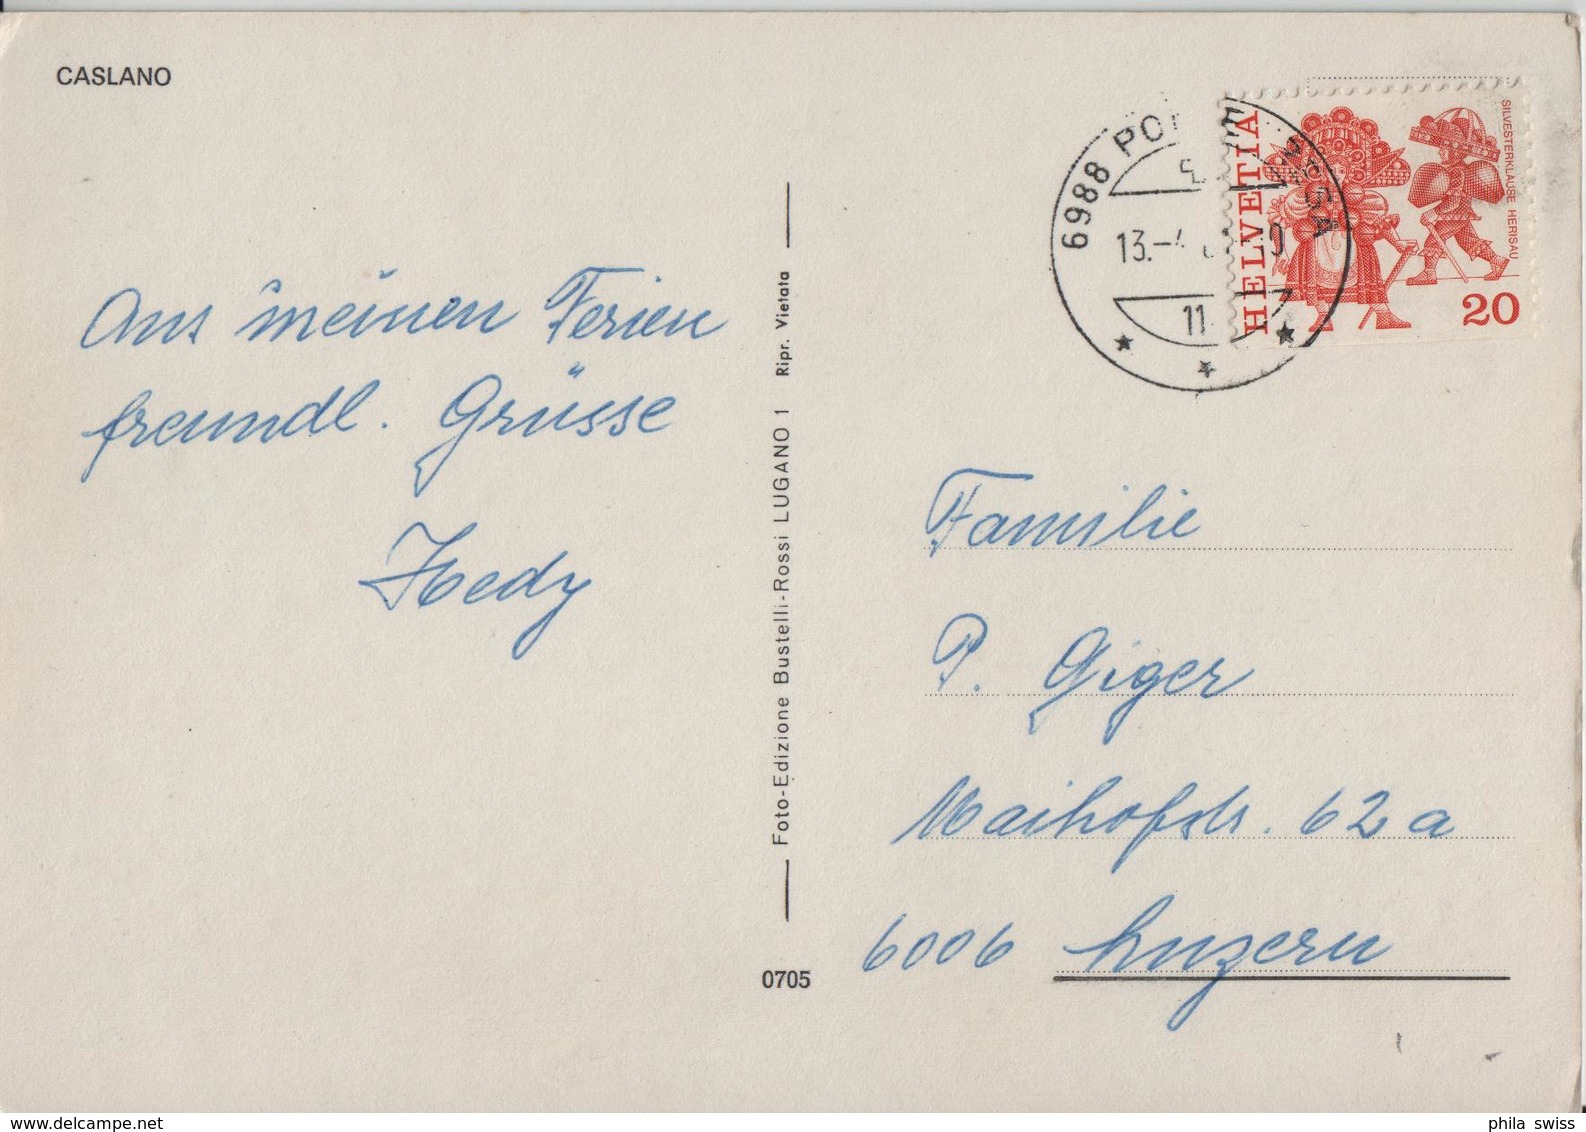 CASLANO
Aus meinen Ferien
freundl. Grüsse
Hedy
Foto-Edizione Bustelli-Rossi LUGANO 1 Ripr. Vietata
0705
6988 PO
13.-4
11
HELVETIA
SILVESTERKLÄUSE HERISAU
20
Familie
P. Giger
Maihofstr. 62a
6006 Luzern
phila swiss